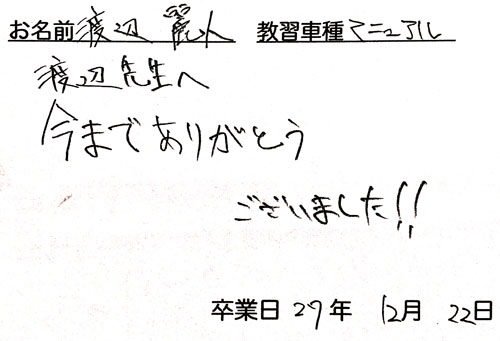 お名前 渡辺 麗人 教習車種 マニュアル
渡辺先生へ
今までありがとう
ございました!!
卒業日 29年 12月 22日